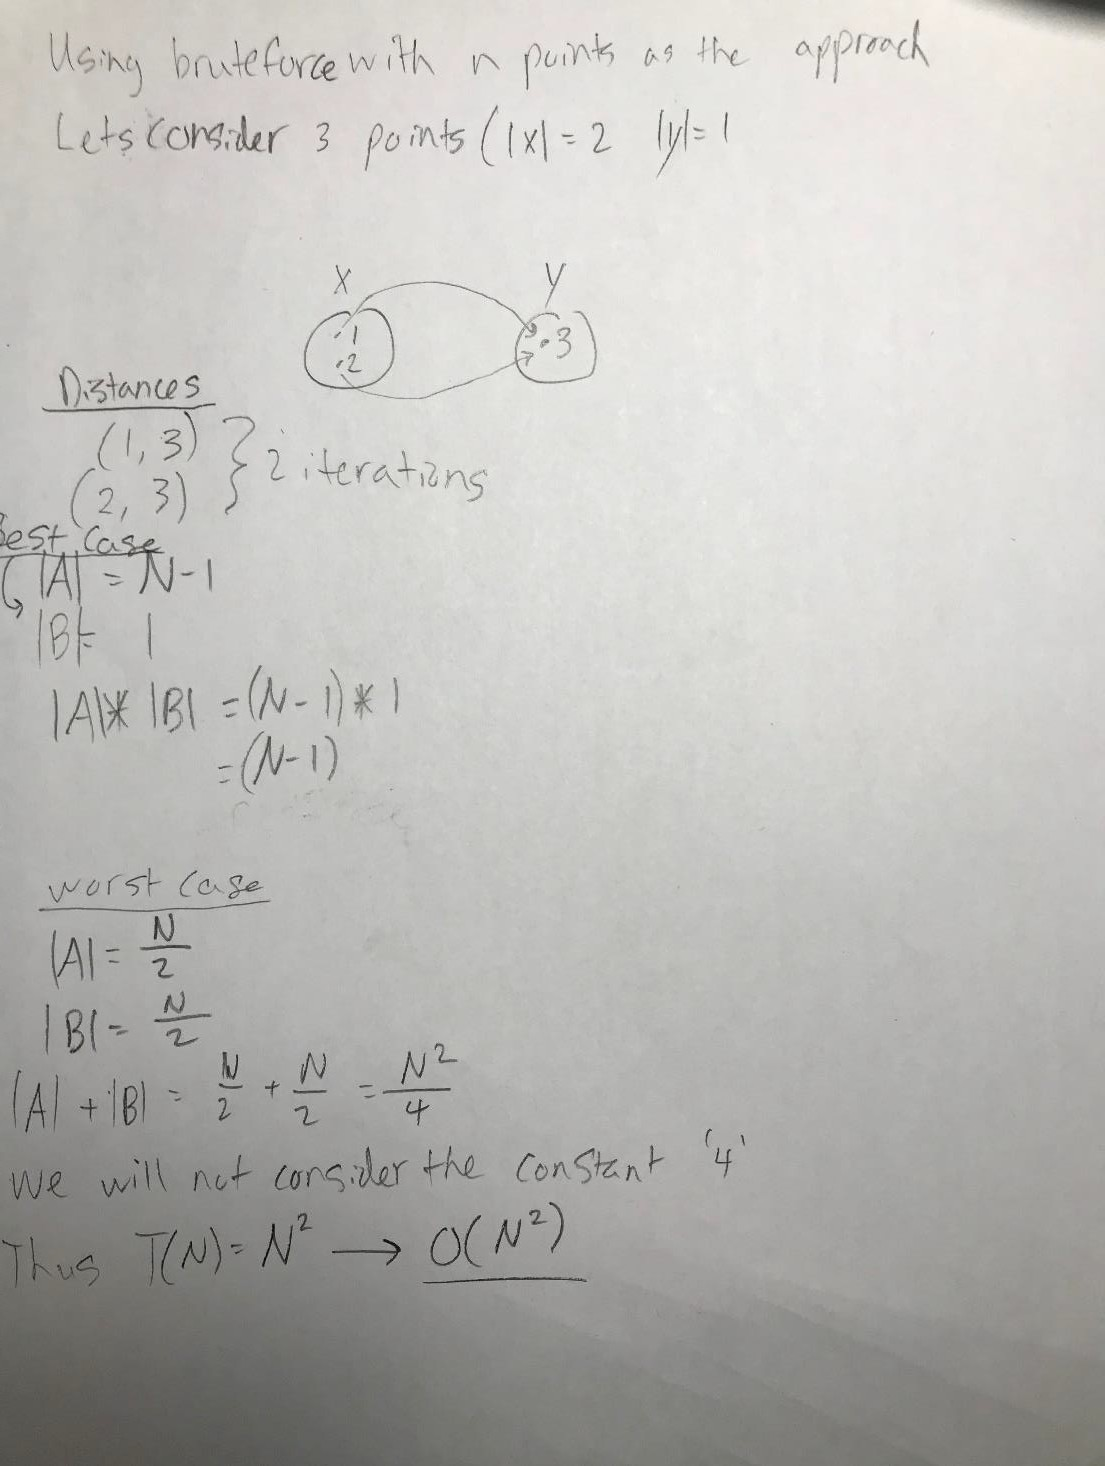 Using bruteforce with n points as the approach
Lets consider 3 points (|x| = 2 |y| = 1
X Y
.1
.2
.3
Distances
(1, 3)
(2, 3)
} 2 iterations
Best Case
|A| = N-1
|B| = 1
|A| * |B| = (N-1) * 1
= (N-1)
worst case
|A| = N/2
|B| = N/2
|A| + |B| = N/2 + N/2 = N²/4
We will not consider the constant '4'
Thus T(N) = N² → O(N²)